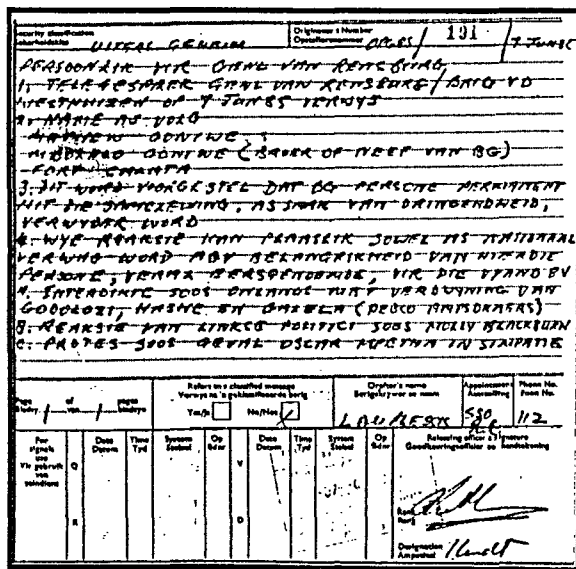 Security classification
UITERS GEHEIM
Originator's Number
OPS 85/
191
7 JUN 85
PERSOONLIK VIR GENL VAN RENSBURG
1. TELEGESPREK GENL VAN RENSBURG/BRIG VD
WESTHUIZEN OP 7 JUN 85 VERWYS
2. NAME AS VOLG
MATHEW GONIWE
MBULELO GONIWE (BROER OF NEEF VAN BG)
FORT CALATA
3. DIT WORD VOORGESTEL DAT BG PERSONE PERMANENT
UIT DIE SAMELEWING, AS SAAK VAN DRINGENDHEID,
VERWYDER WORD
4. WYE REAKSIE KAN PLAASLIK SOWEL AS NASIONAAL
VERWAG WORD AGV BELANGRIKHEID VAN HIERDIE
PERSONE, VERAL EERSGENOEMDE, VIR DIE VYAND BV
A. INTERDIKTE SOOS ONLANGS MET VERDWYNING VAN
GODOLOZI, HASHE EN GALELA (PEBCO AMPSDRAERS)
B. REAKSIE VAN LINKSE POLITICI SOOS MOLLY BLACKBURN
C. PROTES SOOS GEVAL OSCAR MPETHA IN SIMPATIE
Page
Bladsy 1 of van 1 pages bladsye
Refers to a classified message
Verwys na 'n geklassifiseerde berig
Yes/Ja
No/Nee
Drafter's name
Berigskrywer se naam
LOU RENS
Appointment
Aanstelling
SSO
Phone No.
Foon No.
112
For signals use
Vir gebruik van seindiens
Q
R
Date
Datum
Time
Tyd
System
Stelsel
Op
V
D
Date
Datum
Time
Tyd
System
Stelsel
Op
Releasing officer's signature
Goedkeuringsoffisier se handtekening
Rank
Rang
Designation
Ampstitel